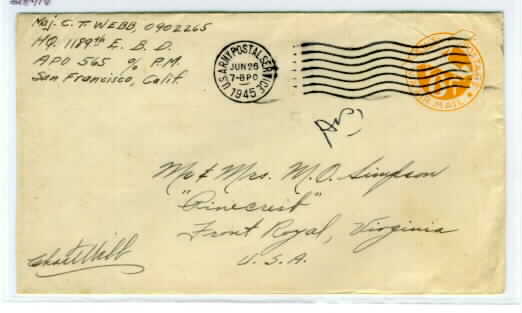 Maj. C. T. WEBB, 0902265
HQ. 1189th E. B. D.
APO 565 % P.M.
San Francisco, Calif.
U.S. ARMY POSTAL SERVICE
JUN 26
7-BPO
1945
POSTAGE
AIR MAIL
Ans
Mr & Mrs. M. O. Simpson
"Pinecrest"
Front Royal, Virginia
U. S. A.